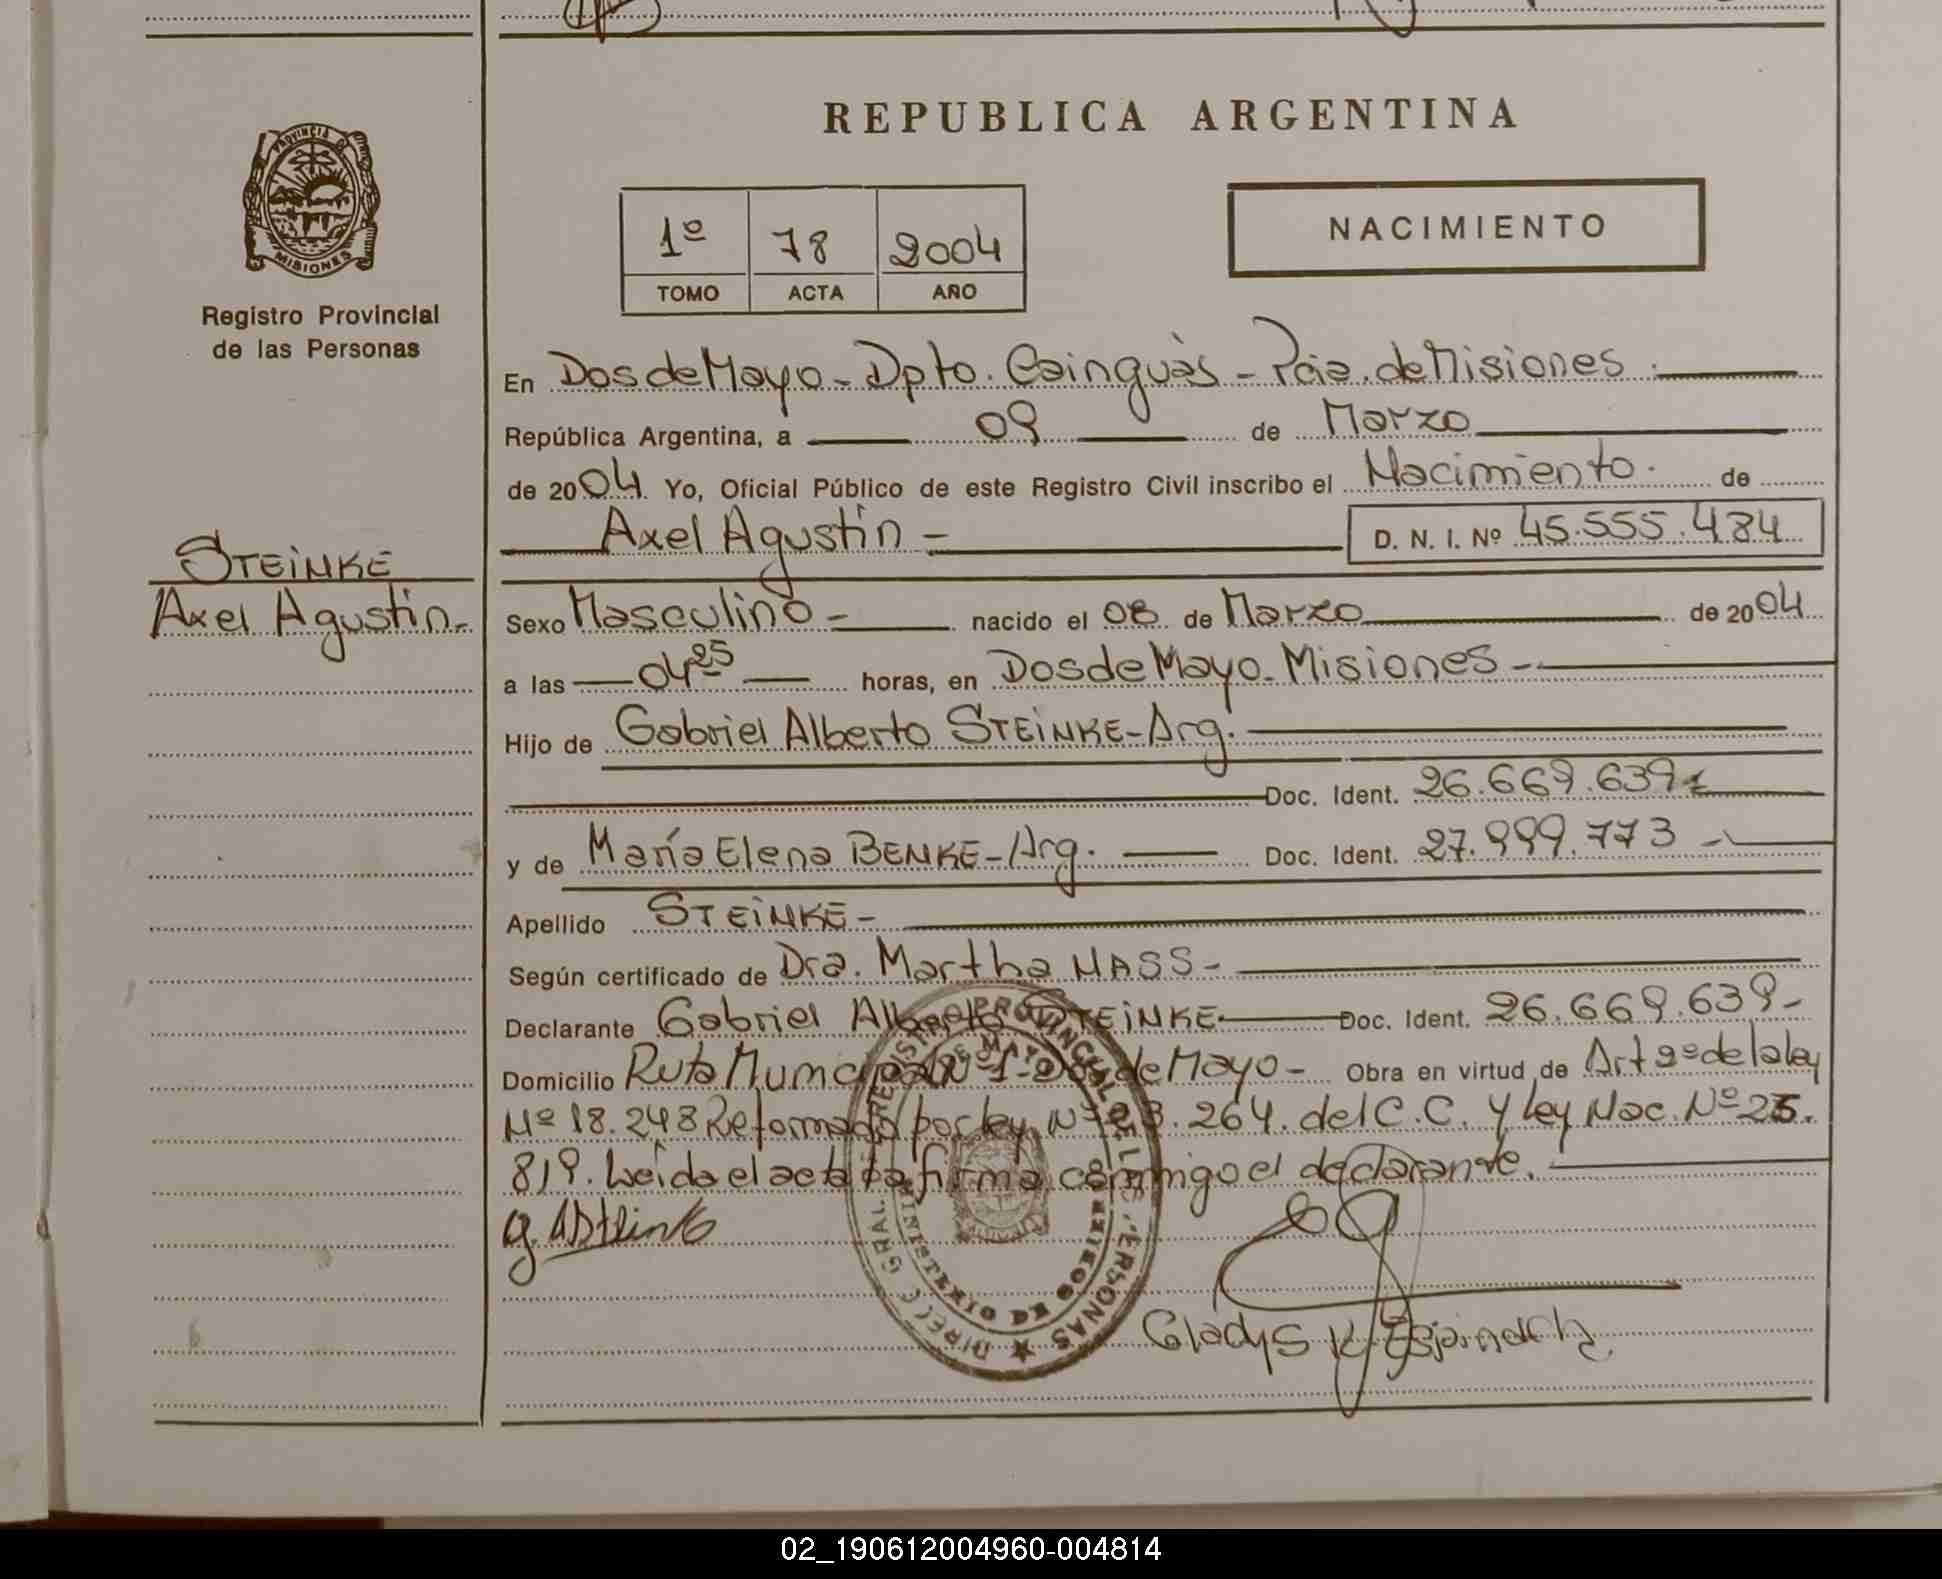 REPUBLICA ARGENTINA
PROVINCIA DE MISIONES
Registro Provincial
de las Personas
1º 78 2004
TOMO ACTA AÑO
NACIMIENTO
En Dos de Mayo - Dpto. Cainguàs - Pcia. de Misiones.
República Argentina, a 09 de Marzo
de 2004. Yo, Oficial Público de este Registro Civil inscribo el Nacimiento. de
Axel Agustín - D. N. I. Nº 45.555.484
STEINKE
Axel Agustin.-
Sexo Masculino - nacido el 08 de Marzo de 2004
a las 04 25 horas, en Dos de Mayo - Misiones -
Hijo de Gabriel Alberto STEINKE - Arg.
Doc. Ident. 26.669.639
y de María Elena BENKE - Arg. Doc. Ident. 27.999.773 -
Apellido STEINKE -
Según certificado de Dra. Martha HASS -
Declarante Gabriel Alberto STEINKE Doc. Ident. 26.669.639 -
Domicilio Ruta Municipal Nº 1 - Dos de Mayo - Obra en virtud de Art 2º de la ley
Nº 18.248 Reformado por ley Nº 23.264. del C.C. y ley Nac. Nº 25.
819. Leída el acta la firma conmigo el declarante.
DIRECC. GRAL. REGISTRO PROVINCIAL DE LAS PERSONAS
MINISTERIO DE GOBIERNO
DOS DE MAYO
Gladys
02_190612004960-004814